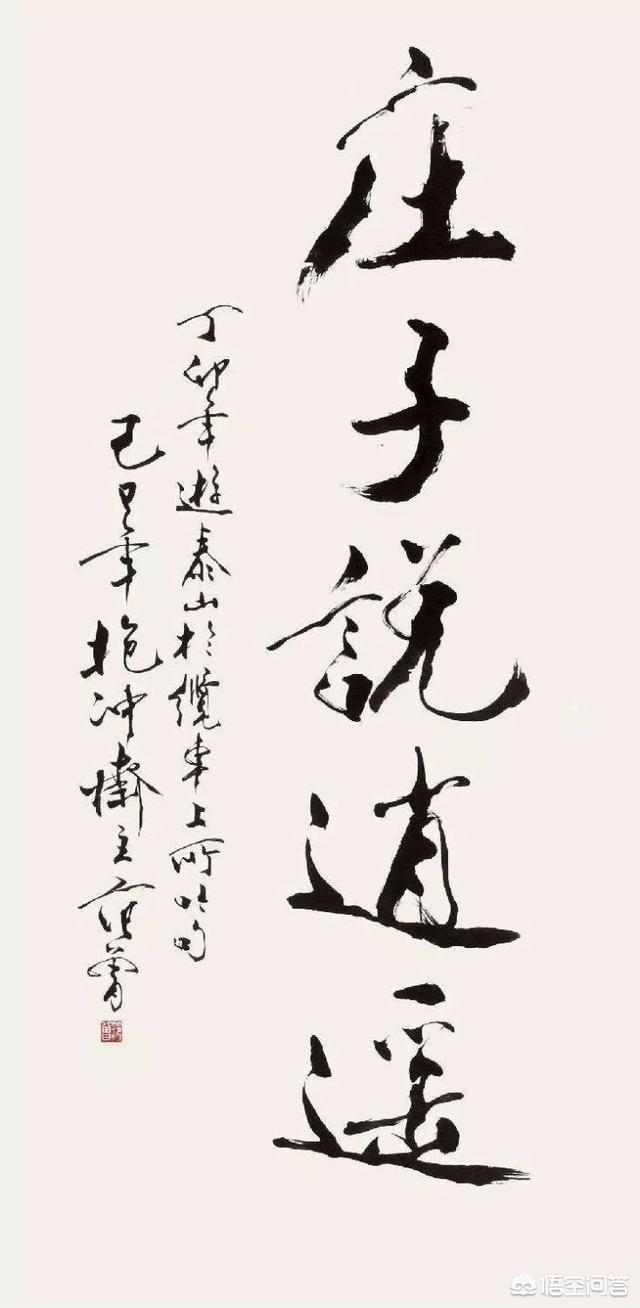 庄子説逍遥
丁卯年遊泰山於纜車上所吟句
己巳年抱冲齋主范曾
悟空问答